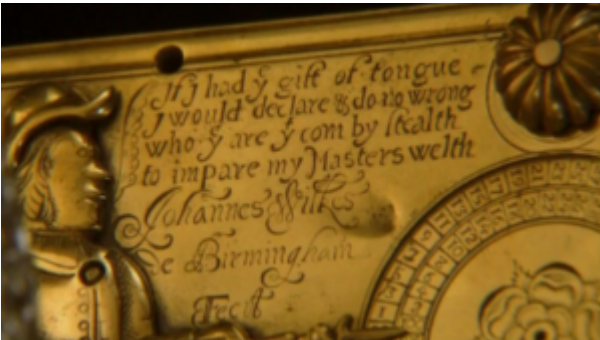 If J had ẏ gift of tongue
J would declare & do no wrong
who ẏ are ẏ com by stealth
to impare my Masters welth
Johannes Wilkes
De Birmingham
Fecit